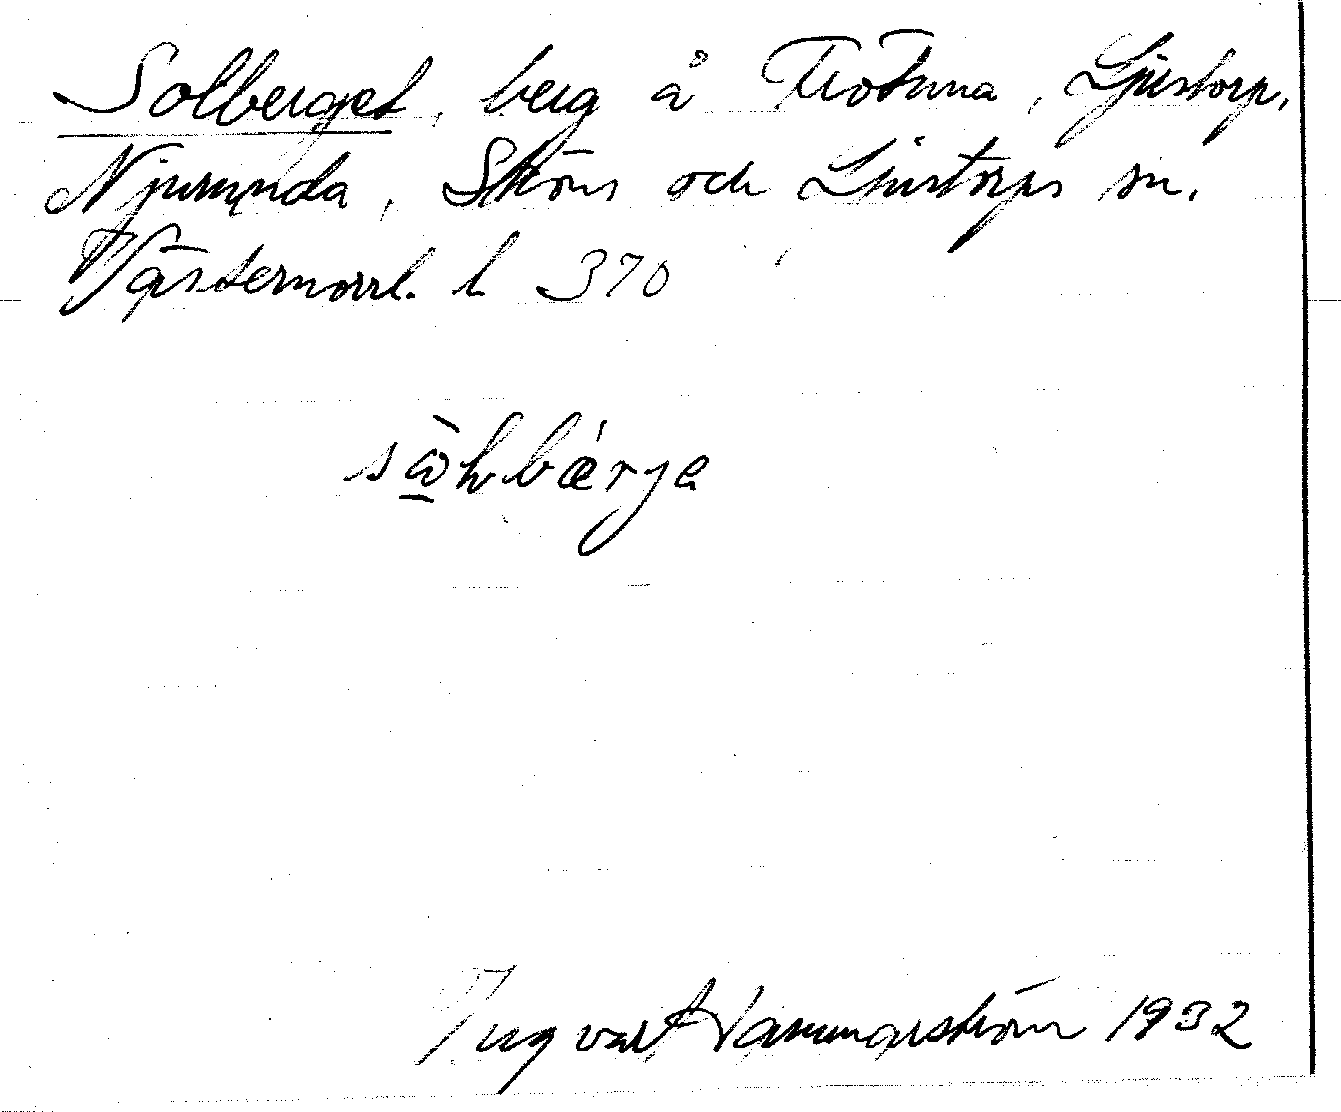 Solberget, berg å Trotuna, Ljustorp,
Njurunda, Sköns och Ljustorps sn.
Västernorrl. l 370
Ingvar Hammarström 1932